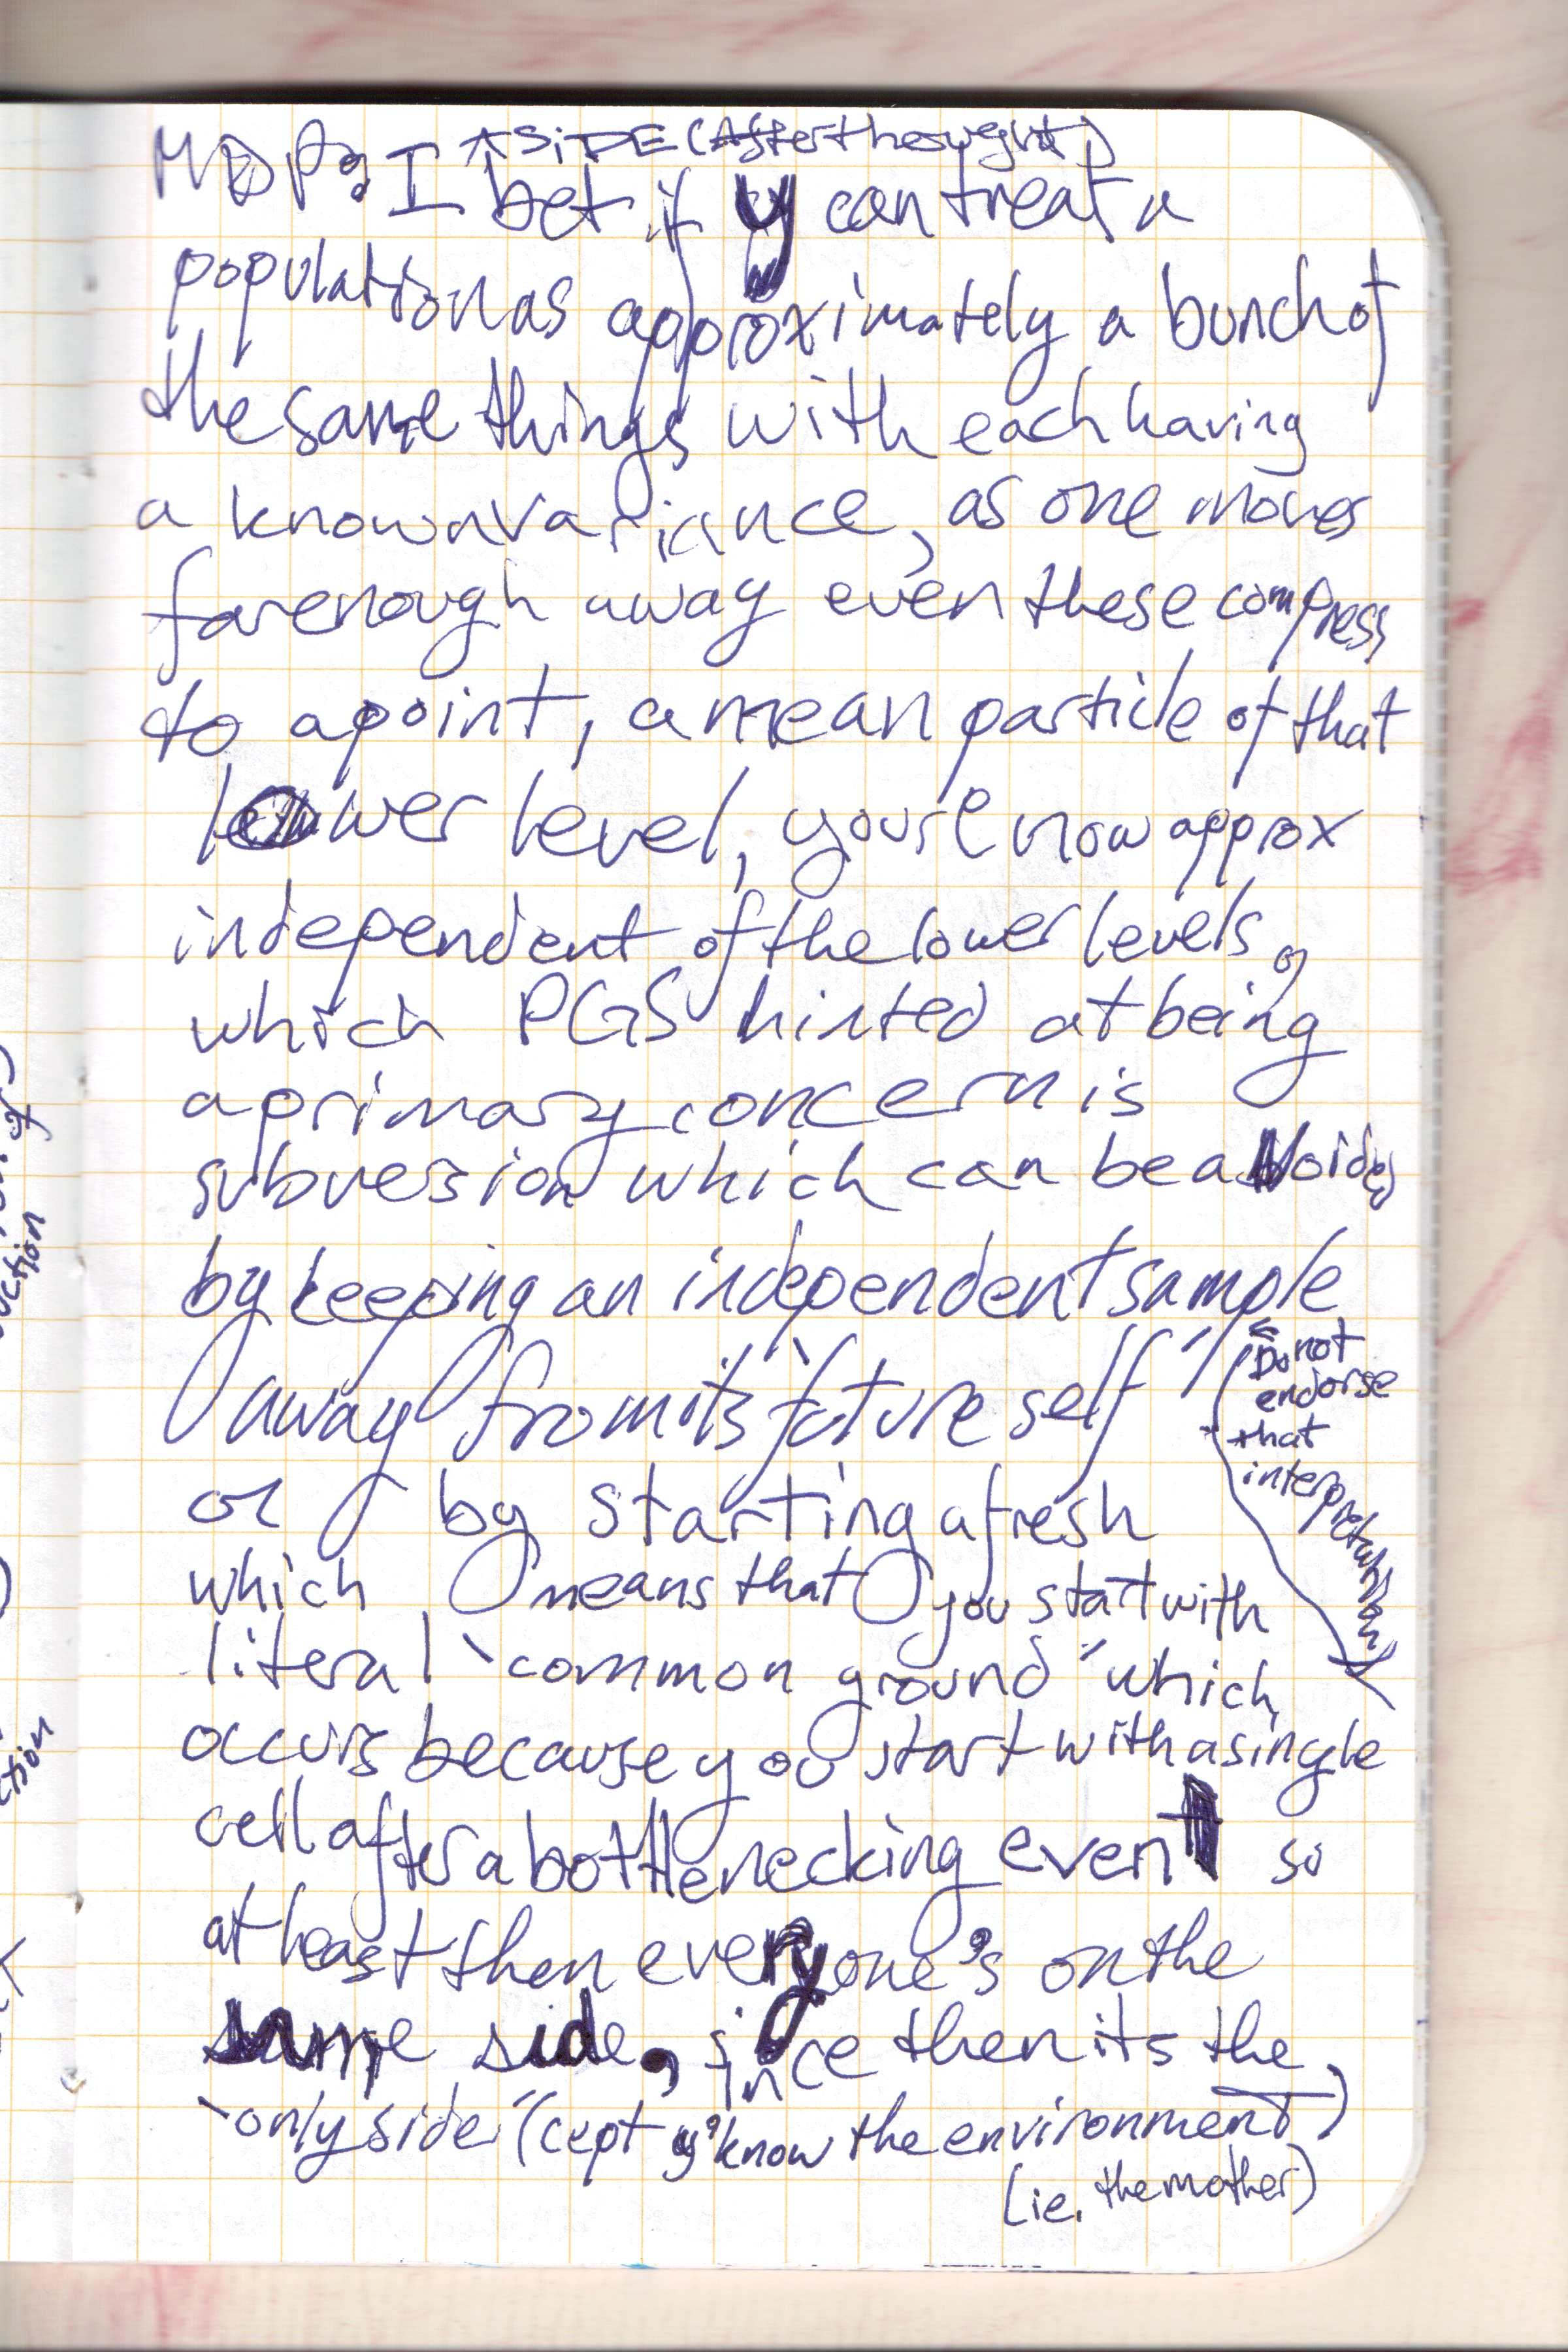 ASIDE (Afterthought)
MDP: I bet if y can treat a
population as approximately a bunch of
the same things with each having
a known variance, as one moves
far enough away even these compress
to a point, a mean particle of that
lower level, you're now approx
independent of the lower levels,
which PGS hinted at being
a primary concern is
subversion which can be avoided
by keeping an independent sample
away from its "future self"
or by starting afresh
which means that you start with
literal "common ground" which
occurs because you start with a single
cell after a bottlenecking event so
at least then everyone's on the
same side, since then its the
"only side" (cept y'know the environment)
(ie. the mother)
Do not
endorse
that
interpretation
ction